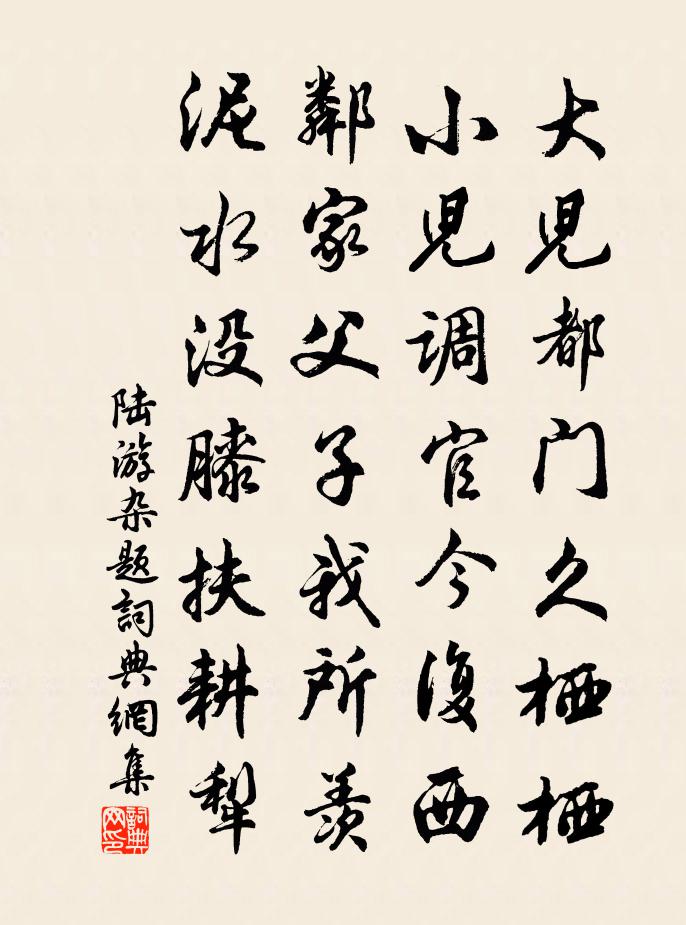 大児都門久栖栖
小児調官今復西
鄰家父子我所羨
泥水没膝扶耕犂
陆游杂题詞典網集
詞典
网印